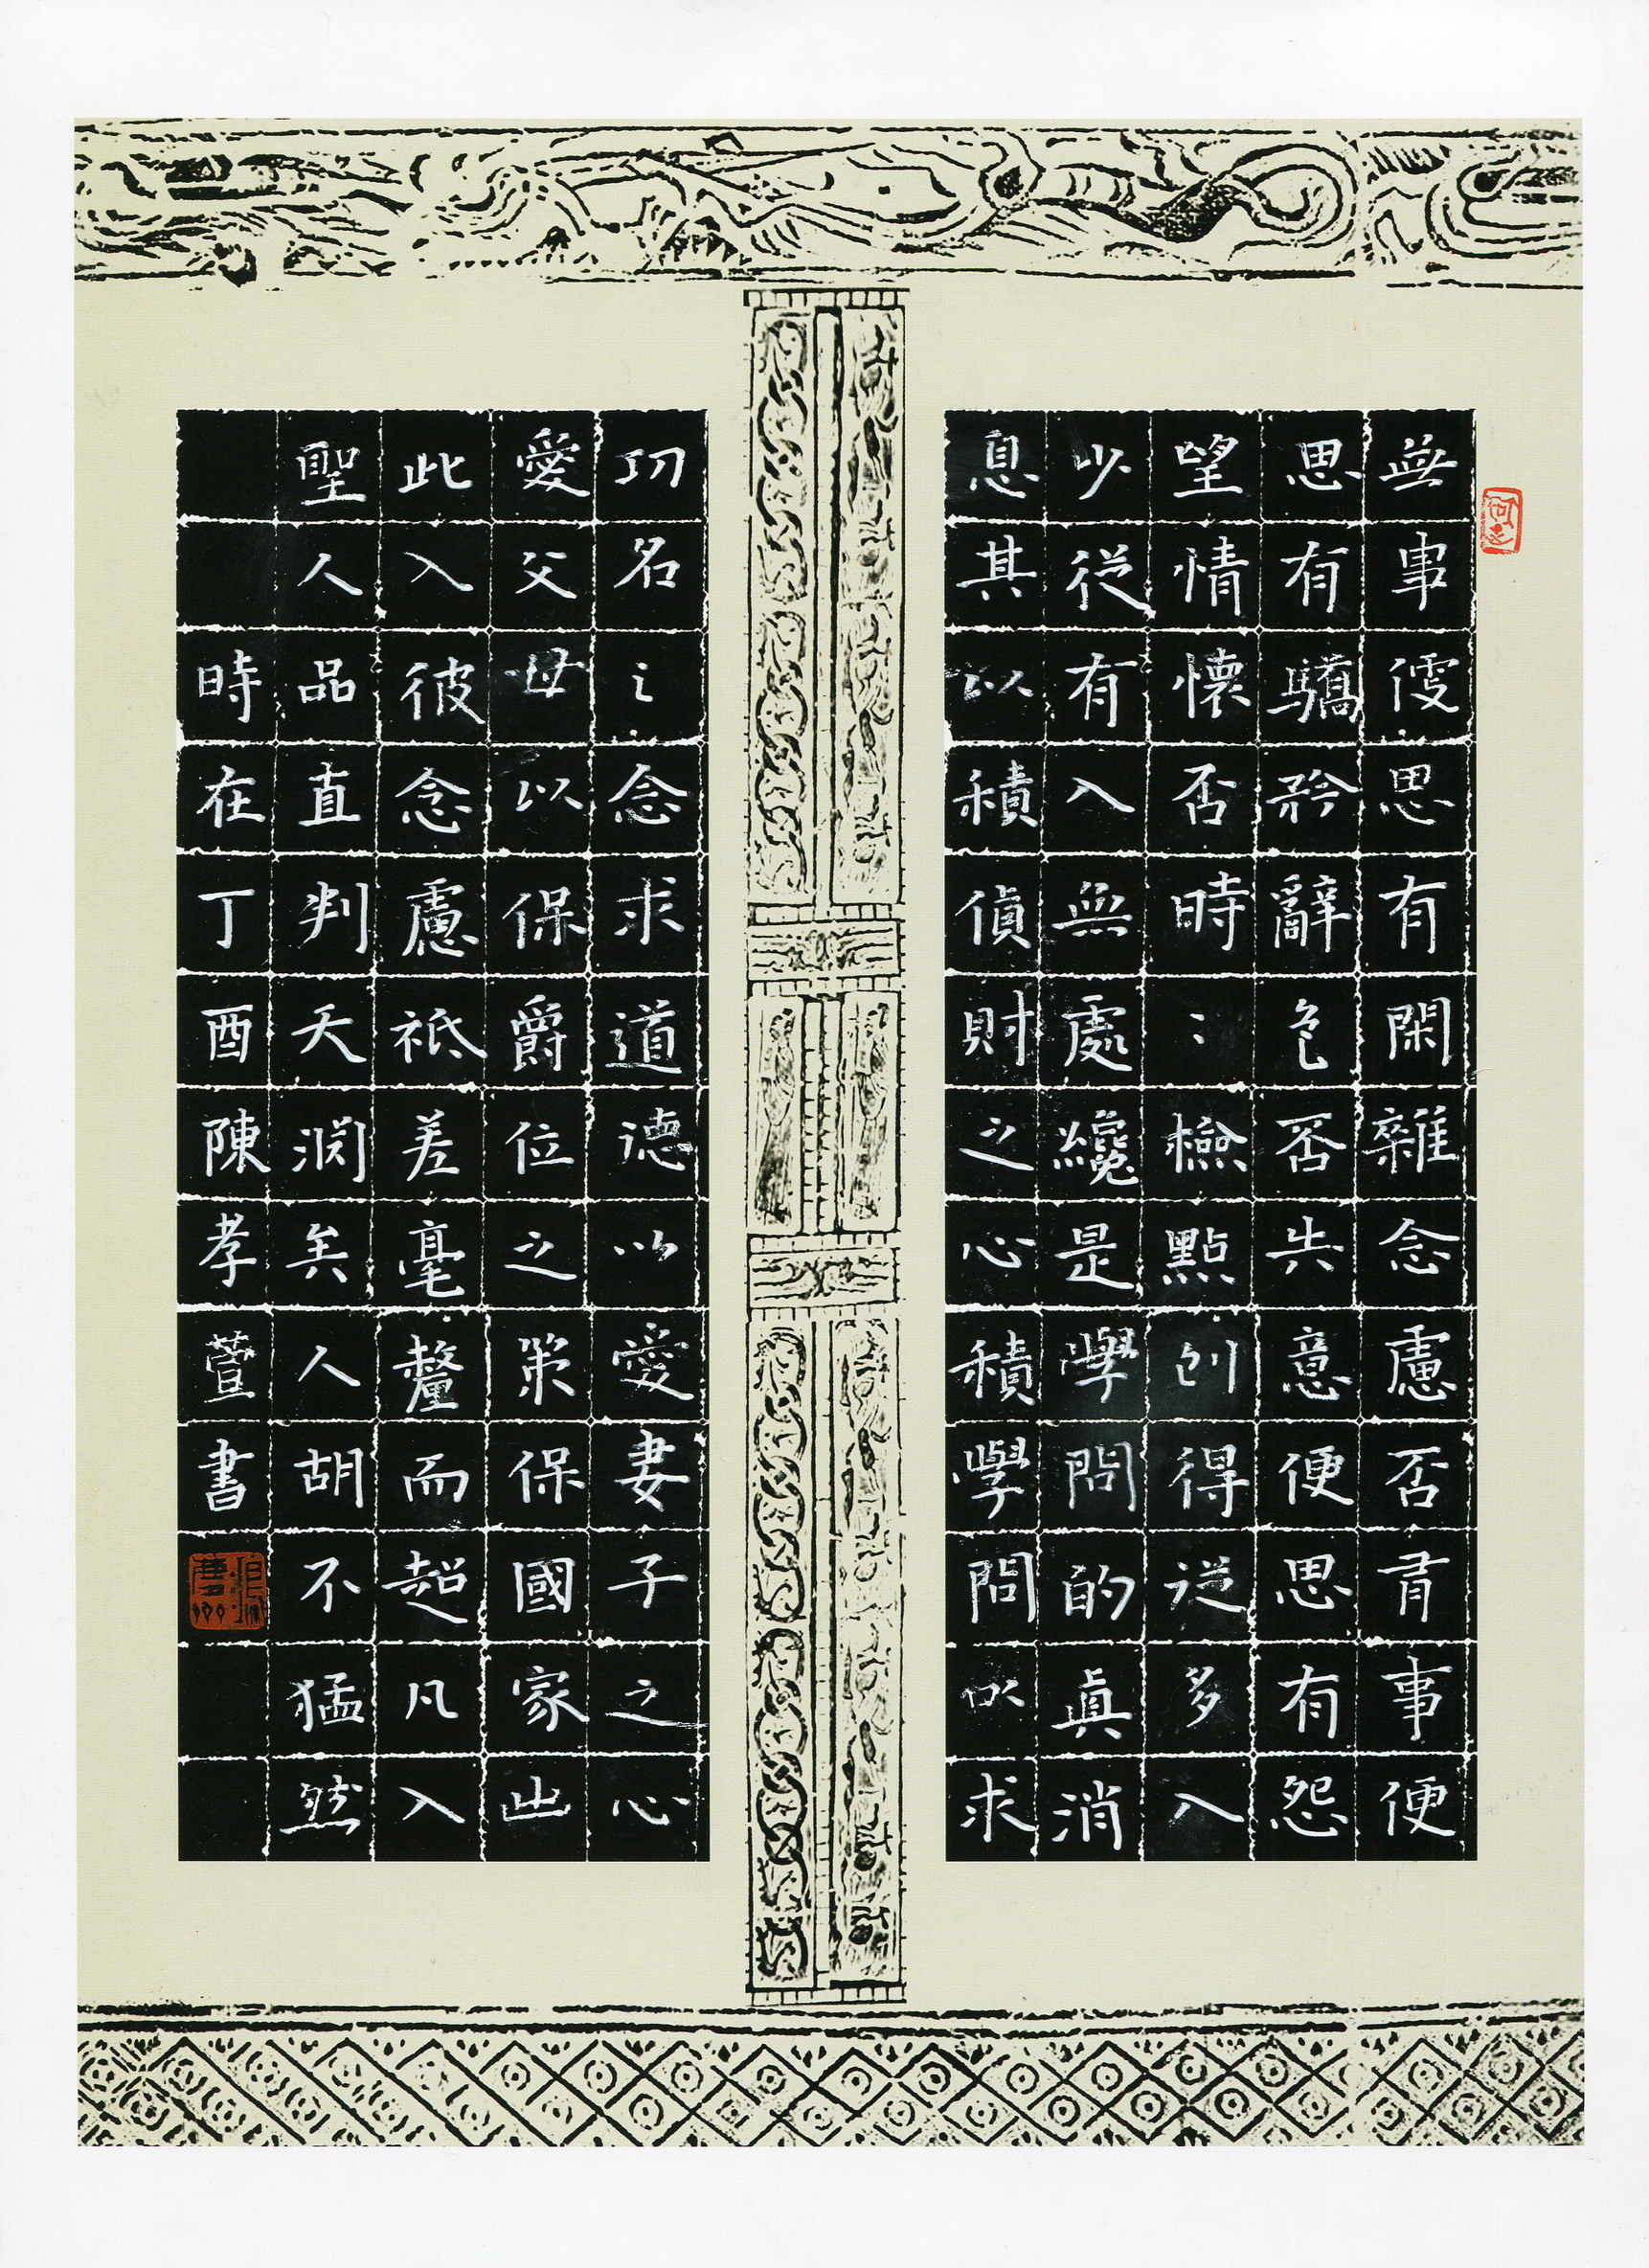 無事㑴思有閑雜念慮否有事便
思有驕矜辭色否共意便思有怨
望情懷否時〻檢點刨得從多入
少從有入無處纔是學問的真消
息其以積偵財之心積學問以求
功名之念求道德以愛妻子之心
愛父母以保爵位之策保國家出
此入彼念慮祗差毫釐而超凡入
聖人品直判天淵矣人胡不猛然
時在丁酉陳孝萱書